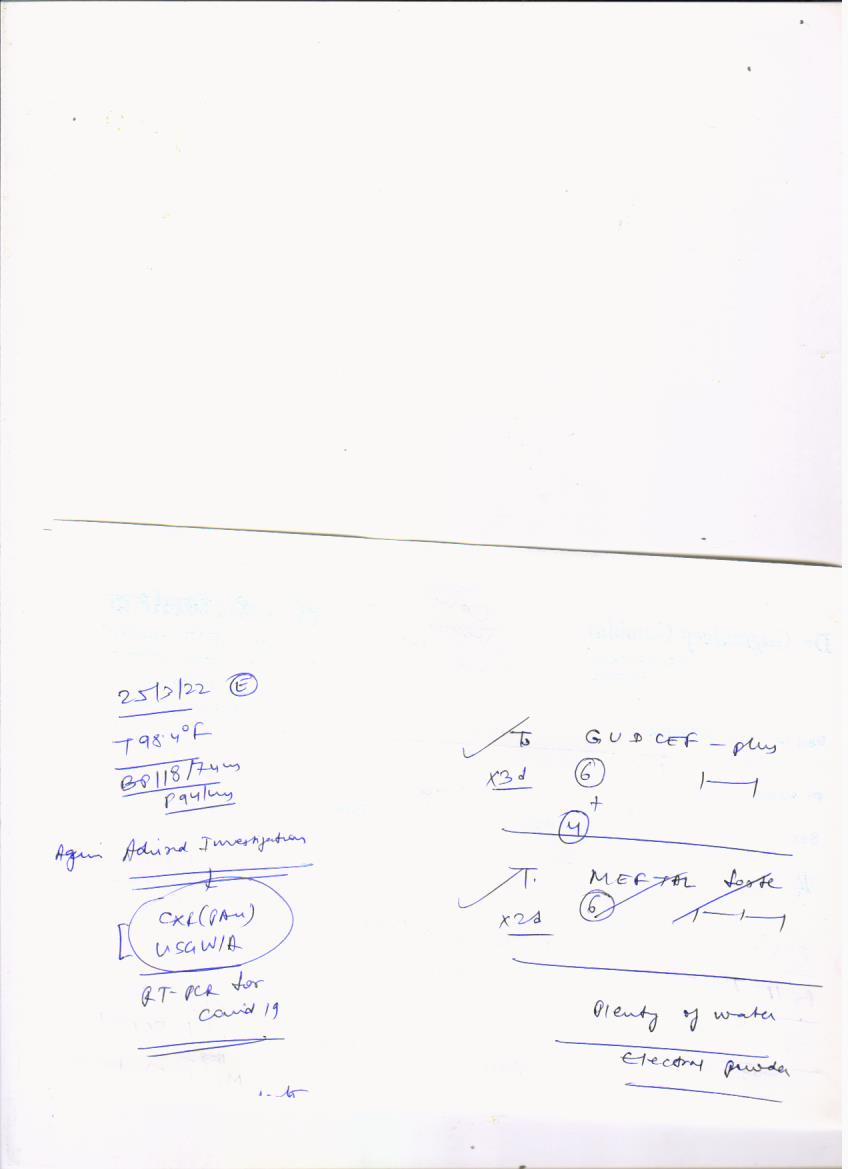 25/3/22 (E)
T 98.4°F
BP 118/74
P 94/
Again Advised Investigation
CXR (PA)
USG W/A
RT-PCR for
Covid 19
T. GUDCEF - plus
x3d (6)
+
(4)
T. MEFTAL forte
x2d (6)
Plenty of water
Electral powder